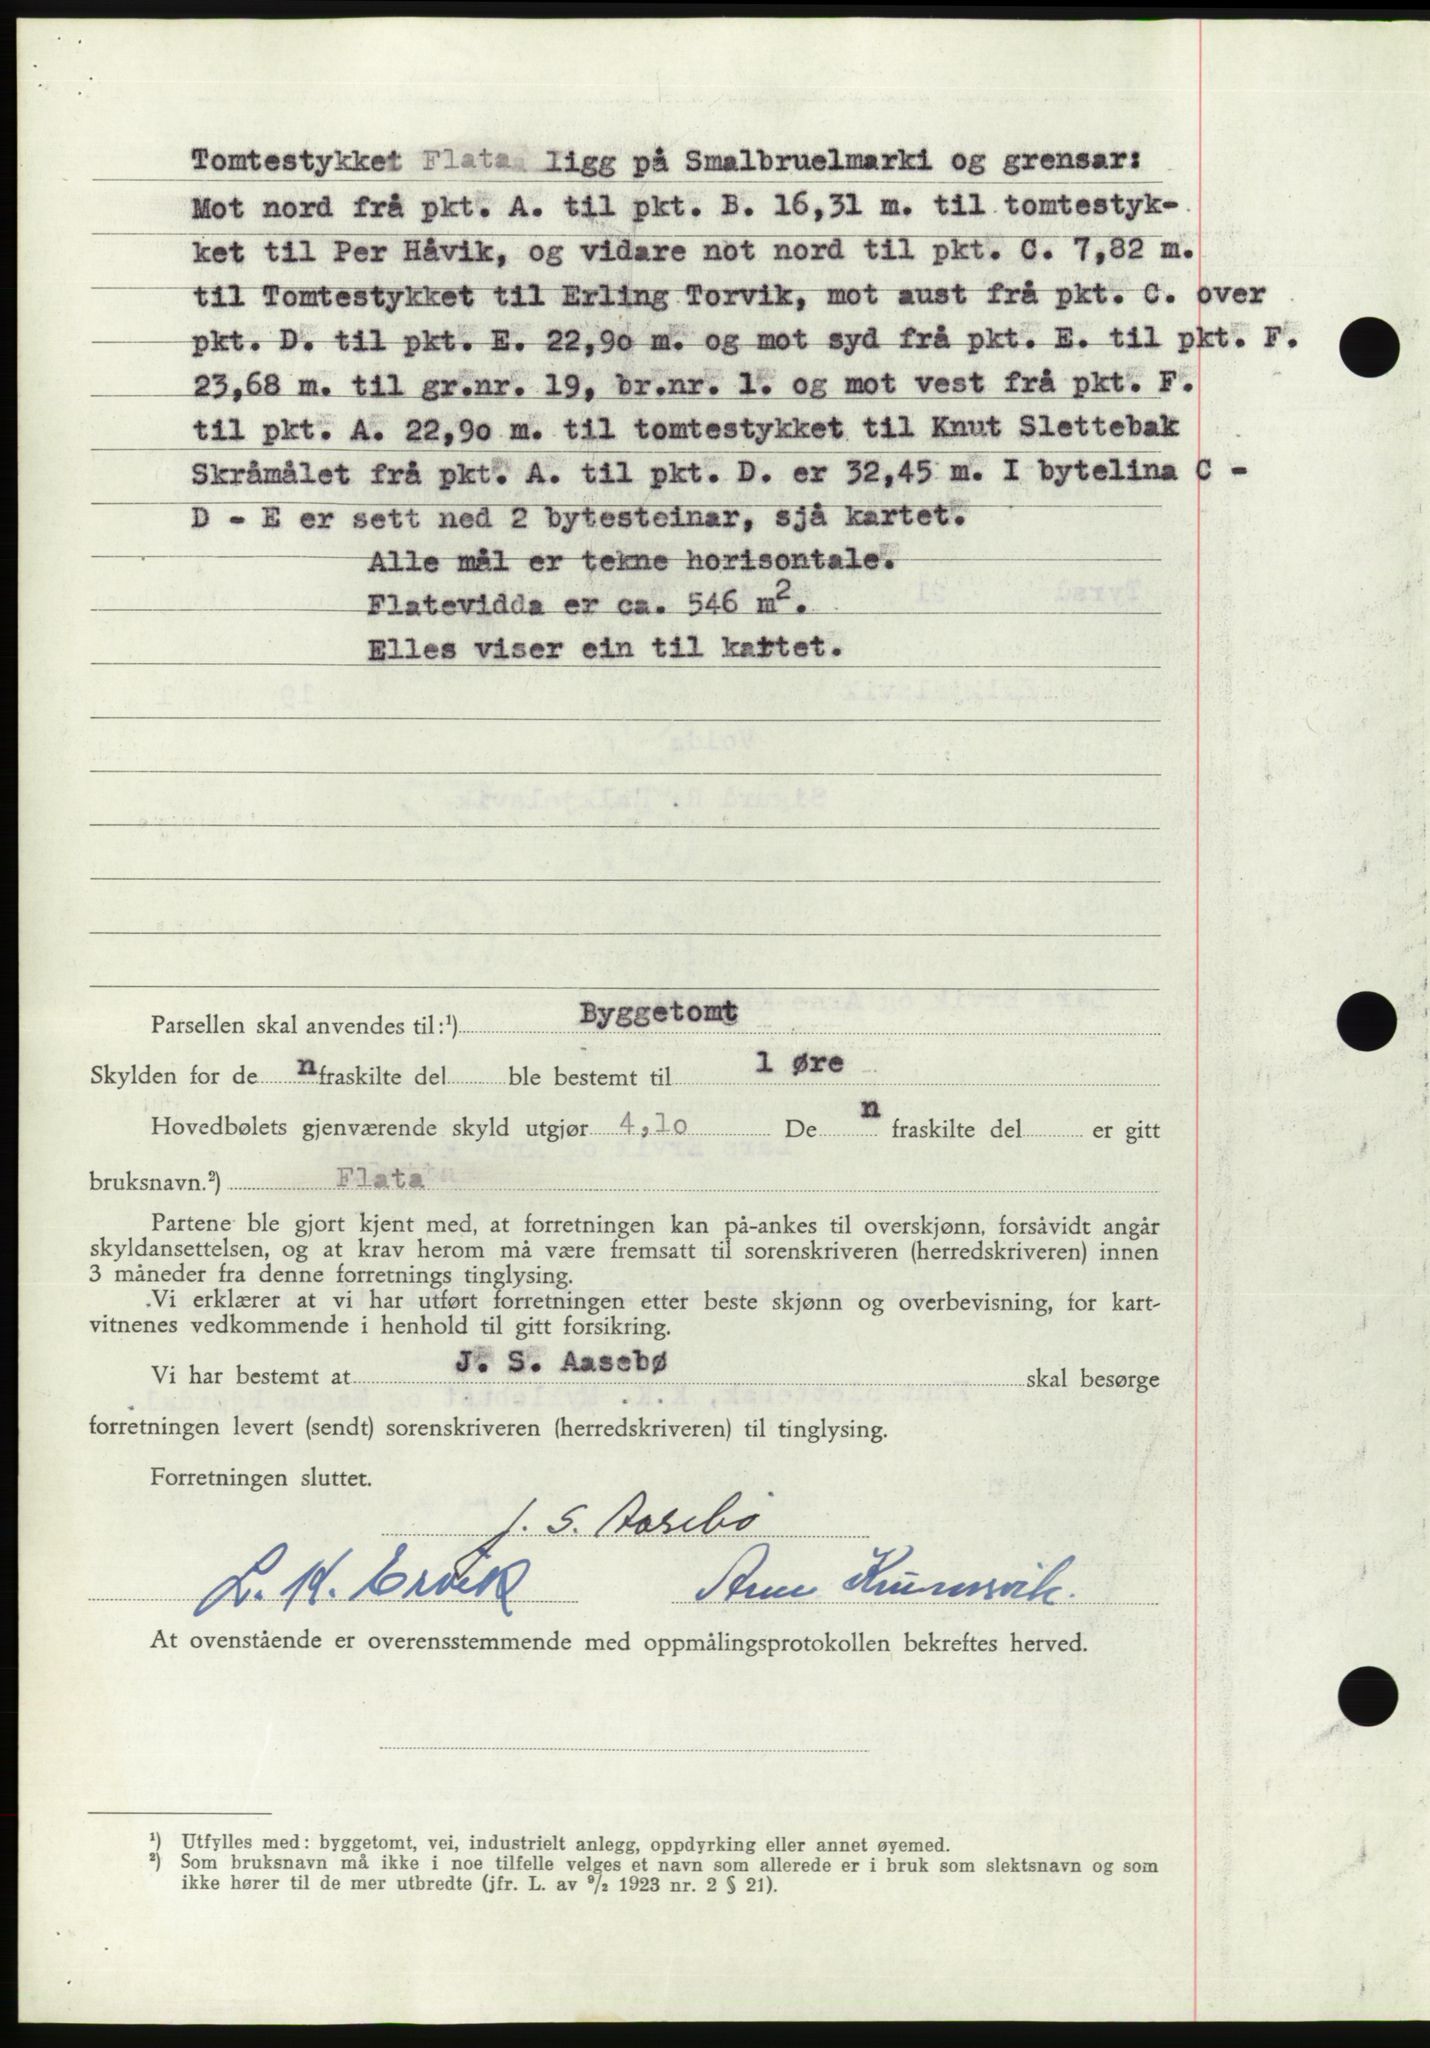 Tomtestykket Flata ligg på Smalbruelmarki og grensar:
Mot nord frå pkt. A. til pkt. B. 16,31 m. til tomtestyk-
ket til Per Håvik, og vidare not nord til pkt. C. 7,82 m.
til Tomtestykket til Erling Torvik, mot aust frå pkt. C. over
pkt. D. til pkt. E. 22,90 m. og mot syd frå pkt. E. til pkt. F.
23,68 m. til gr.nr. 19, br.nr. 1. og mot vest frå pkt. F.
til pkt. A. 22,90 m. til tomtestykket til Knut Slettebak
Skråmålet frå pkt. A. til pkt. D. er 32,45 m. I bytelina C -
D - E er sett ned 2 bytesteinar, sjå kartet.
Alle mål er tekne horisontale.
Flatevidda er ca. 546 m².
Elles viser ein til kartet.
Parsellen skal anvendes til:¹) Byggetomt
Skylden for de n fraskilte del ble bestemt til 1 øre
Hovedbølets gjenværende skyld utgjør 4,10 De n fraskilte del er gitt
bruksnavn.²) Flata
Partene ble gjort kjent med, at forretningen kan på-ankes til overskjønn, forsåvidt angår
skyldansettelsen, og at krav herom må være fremsatt til sorenskriveren (herredskriveren) innen
3 måneder fra denne forretnings tinglysing.
Vi erklærer at vi har utført forretningen etter beste skjønn og overbevisning, for kart-
vitnenes vedkommende i henhold til gitt forsikring.
Vi har bestemt at J. S. Aasebø skal besørge
forretningen levert (sendt) sorenskriveren (herredskriveren) til tinglysing.
Forretningen sluttet.
J. S. Aasebø
L. K. Ervik Arne Krumsvik.
At ovenstående er overensstemmende med oppmålingsprotokollen bekreftes herved.
¹) Utfylles med: byggetomt, vei, industrielt anlegg, oppdyrking eller annet øyemed.
²) Som bruksnavn må ikke i noe tilfelle velges et navn som allerede er i bruk som slektsnavn og som
ikke hører til de mer utbredte (jfr. L. av ⁹/₂ 1923 nr. 2 § 21).